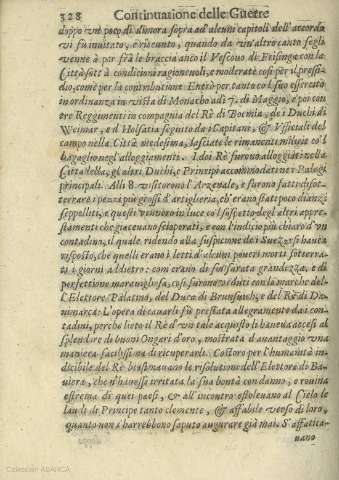 328 Continuatione delle Guerre
doppo un poco di dimora sopra ad alcuni capitoli dell'accordo
vi fu inuitato, e riceunto, quando da un'altro canto se gli
venne à por frà le braccia anco il Vescouo di Frisinga con la
Città sott'à condicioni ragioneuoli, e moderate così per il presi-
dio, come per la contributione. Entrò per tanto co'l suo essercito
in ordinanza in vista di Monacho adi 7. di Maggio, e poi con
tre Reggimenti in compagnia del Rè di Boemia, de i Duchi di
Weimar, e d'Holsatia seguito da i Capitani, & Ufficiali del
campo nella Città medesima, lasciate le rimanenti milicie co'l
bagaglio negl'alloggiamenti. I doi Rè furono alloggiati nella
Cittadella, gl'altri Duchi, e Principi accommodati ne i Palagi
principali. Alli 8. visitorono l'Arzenale, e furono fatti disot-
terrare i pezzi più grossi d'artiglieria, ch'erano stati poco dianzi
seppelliti, e questi vennero in luce co'l sospetto degl'altri appre-
stamenti che giaceuano scioperati, e con l'indicio più chiaro d'un
contadino, il quale ridendo alla suspicione de i Suezzesi hauea
risposto, che quelli erano i letti d'alcuni poueri morti sotterra-
ti e giorni adietro: com'erano di sussurata grandezza, e di
perfettione marauigliosa, così furono veduti con le marche del-
l'Elettore Palatino, del Duca di Brunsuich, e del Rè di Da-
nimarca: L'opera di cauarli fù prestata allegramento dai con-
tadini, perche lieto il Rè d'un tale acquisto li haueua accesi al
splendore di buoni Ongari d'oro, mostrata d'auantaggio una
maniera facilissima di ricuperarli. Costoro per l'humanità in-
dicibile del Rè biasmauano le risolutione dell'Elettore di Ba-
uiera, che n'hauesse irritata la sua bontà con danno, e rouina
estrema di quei paesi, & all'incontro estoleuano al Cielo le
laudi di Principe tanto clemente, & affabile verso di loro,
quanto non i harrebbono saputo augurare già mai. S'affatica-
uano
Colección ABANCA